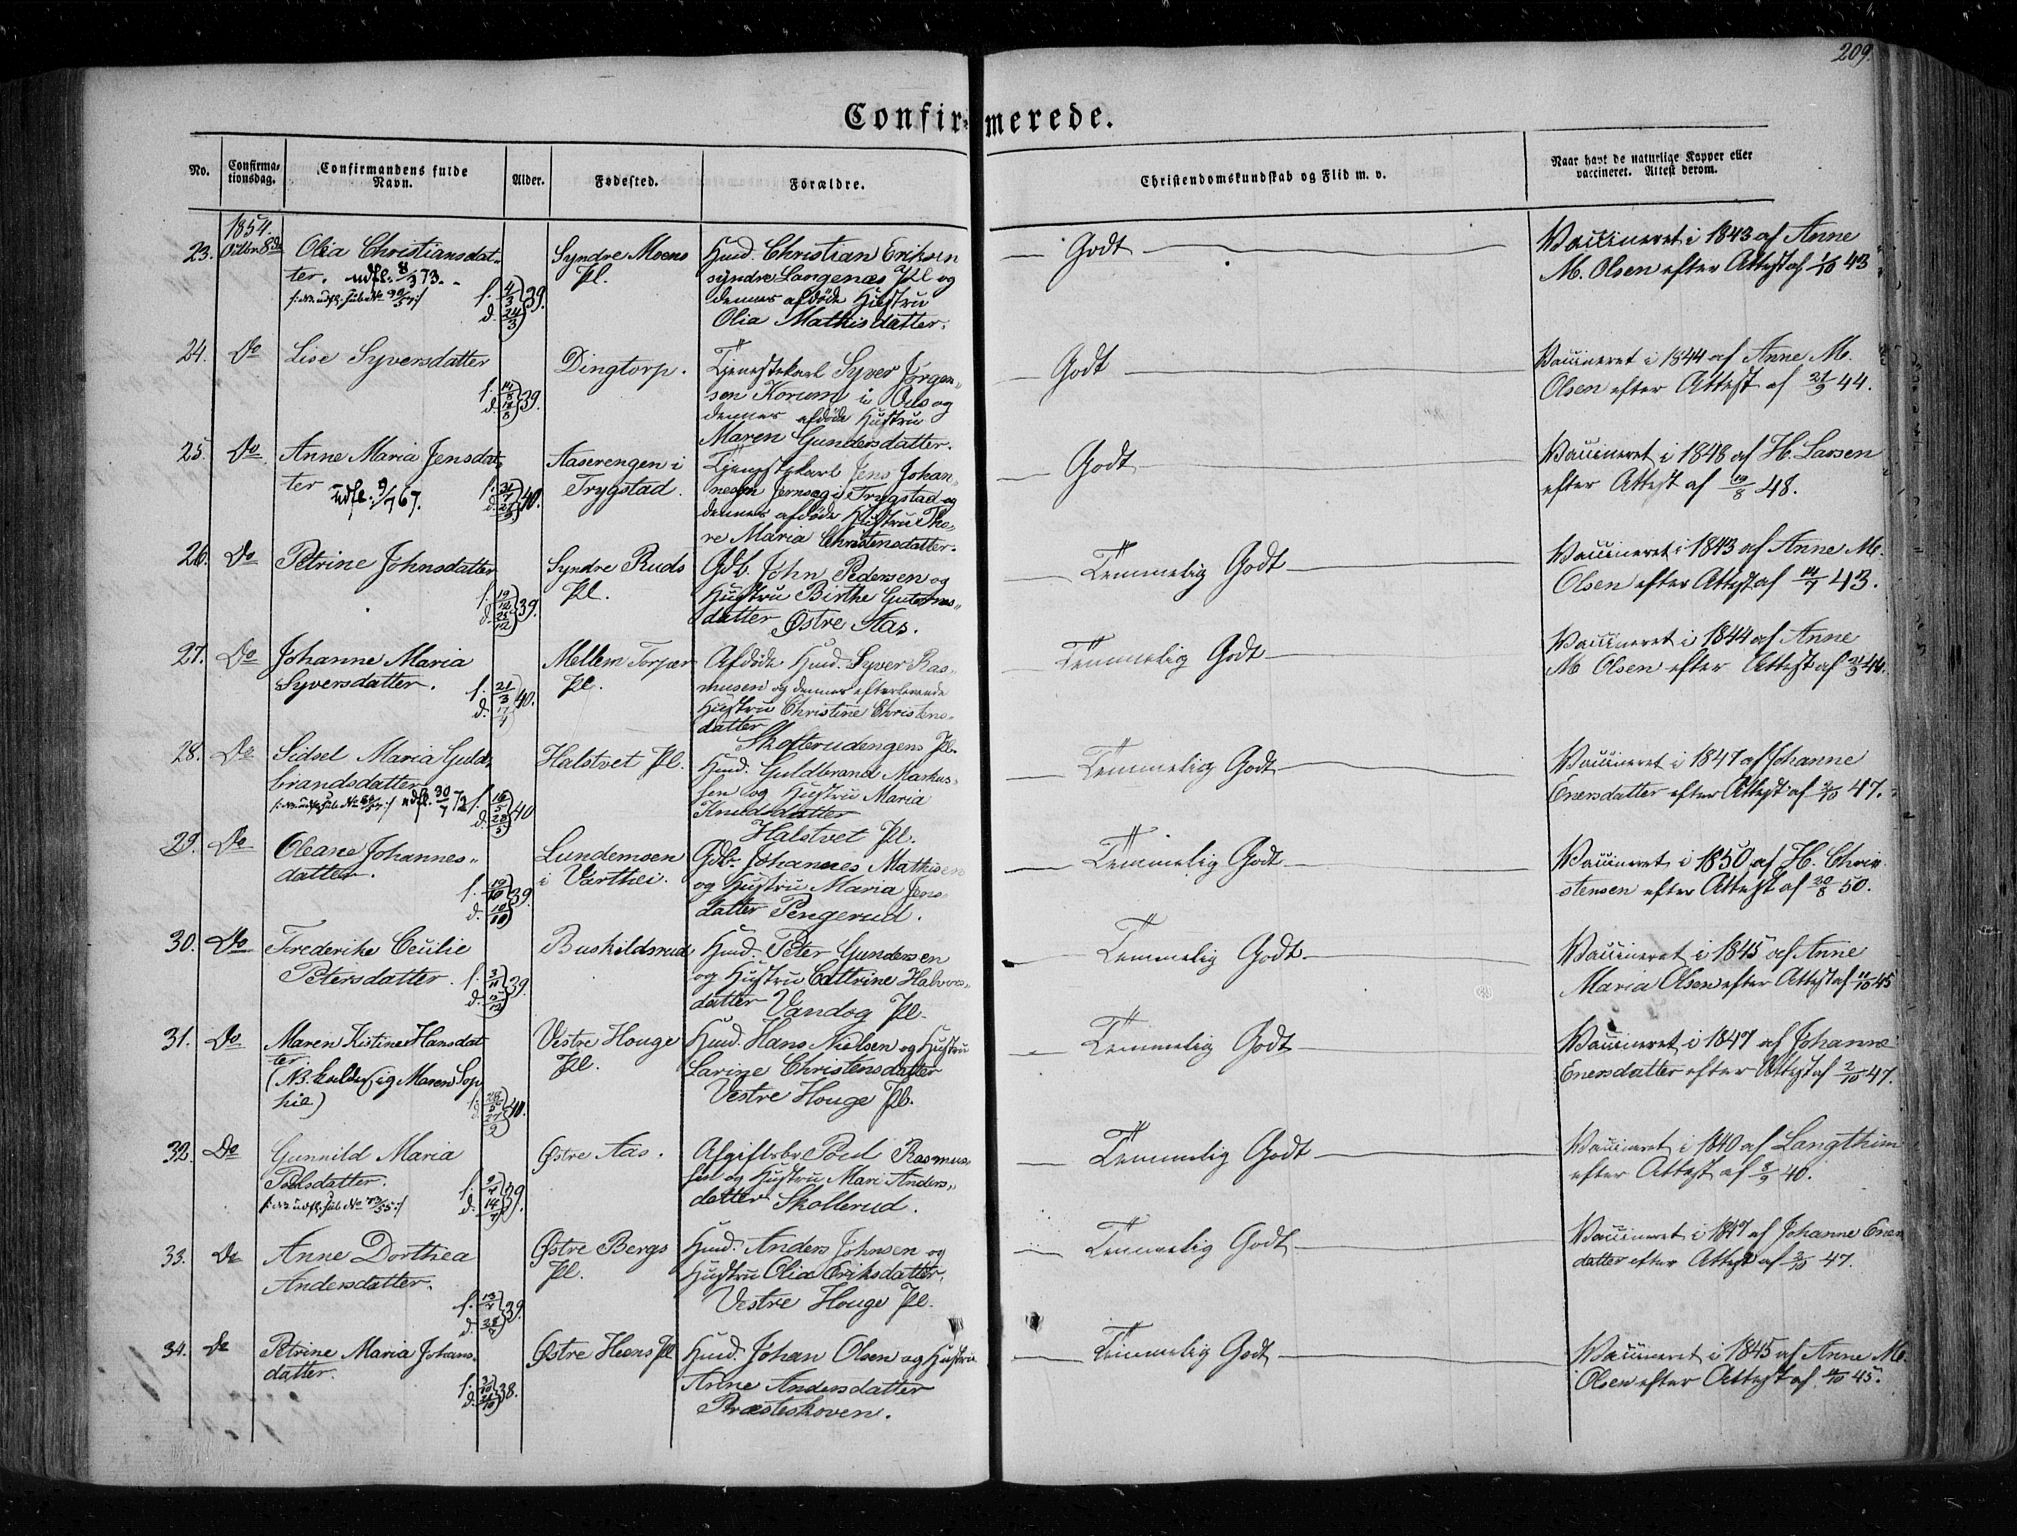 209.
Confirmerede.
No.
Confirma-
tionsdag.
Confirmandens fulde
Navn.
Alder.
Fødested.
Forældre.
Christendomskundskab og Flid m. v.
Naar havt de naturlige Kopper eller
vaccineret. Attest derom.
1854.
23. Octbr 8de Olia Christiansdat-
ter. udfl. 8/3 73.
f. 4/3 d. 24/3 39.
Syndre Moens
Pl.
Huusm. Christian Eriksen
syndre Langenæs Pl og
dennes afdøde Hustru
Olia Mathisdatter.
Godt
Vaccineret i 1843 af Anne
M. Olsen efter Attest af 1/10 43
24. Do Lise Syversdatter
f. 14/8 d. 18/8 39.
Dingtorp.
Tjenestekarl Syver Jørgen-
sen Korum i Ous og
dennes afdøde Hustru
Maren Gundersdatter.
Godt
Vaccineret i 1844 af Anne M.
Olsen efter Attest af 21/9 44.
25. Do Anne Maria Jensdat-
ter udfl. 9/7 67.
40.
Aaserengen i
Trygstad.
Tjenestekarl Jens Johan-
nesen Jernsæg i Trygstad og
dennes afdøde Hustru Tho-
re Maria Christensdatter.
Godt
Vaccineret i 1848 af H. Larsen
efter Attest af 19/8 48.
26. Do Petrine Johnsdatter
f. 19/12 d. 26/12 39.
Syndre Ruds
Pl.
Gdb. John Pedersen og
Hustru Birthe Guttorms-
datter Østre Aas.
Temmelig Godt
Vaccineret i 1843 af Anne M.
Olsen efter Attest af 14/7 43.
27. Do Johanne Maria
Syversdatter.
f. 21/3 d. 17/4 40.
Mellem Torper
Pl.
Afdøde Huusm. Syver Ras-
musen og dennes efterlevende
Hustru Christine Christens-
datter
Skofterudengens Pl.
Temmelig Godt
Vaccineret i 1844 af Anne
M Olsen efter Attest af 21/9 44.
28. Do Sidsel Maria Guld-
brandsdatter
udfl. 30/7 72
f. 16/5 d. 28/5 40
Halstvet Pl.
Huusm. Guldbrand Markus-
sen og Hustru Maria
Knudsdatter
Halstvet Pl.
Temmelig Godt
Vaccineret i 1847 af Johanne
Enersdatter efter Attest af 2/10 47.
29. Do Oleane Johannes-
datter.
f. 19/10 39.
Lundemoen
i Varthei.
Gdb. Johannes Mathisen
og Hustru Maria Jens-
datter Pengerud.
Temmelig Godt
Vaccineret i 1850 af H. Chri-
stensen efter Attest af 20/8 50.
30. Do Frederike Cecilie
Petersdatter.
f. 3/11 d. 15/12 39.
Buskildsrud
Huusm. Peter Gundersen
og Hustru Cathrine Halvors-
datter Vandog Pl.
Temmelig Godt
Vaccineret i 1845 af Anne
Maria Olsen efter Attest af 11/10 45
31. Do Maren Kistine Hansdat-
ter
(NB. kalder sig Maren Sop
hie)
40.
Vestre Houge
Pl.
Huusm. Hans Nielsen og Hustru
Larine Christensdatter
Vestre Houge Pl.
Temmelig Godt
Vaccineret i 1847 af Johanne
Enersdatter efter Attest af 2/10 47.
32. Do Gunnild Maria
Polsdatter.
39.
Østre Aas.
Afgiftsbr. Poul Rasmus-
sen og Hustru Mari Anders-
datter Skollerud.
Temmelig Godt
Vaccineret i 1840 af Langthim
efter Attest af 8/9 40.
33. Do Anne Dorthea
Andersdatter.
39.
Østre Bergs
Pl.
Huusm. Anders Johnsen og
Hustru Olia Eriksdatter,
Vestre Houge Pl.
Temmelig Godt
Vaccineret i 1847 af Johanne Ener
datter efter Attest af 2/10 47.
34. Do Petrine Maria Johans-
datter.
38.
Østre Heens Pl
Huusm. Johan Olsen og Hustru
Anne Andersdatter
Præsteskoven.
Temmelig Godt
Vaccineret i 1845 af Anne M.
Olsen efter Attest af 11/10 45.